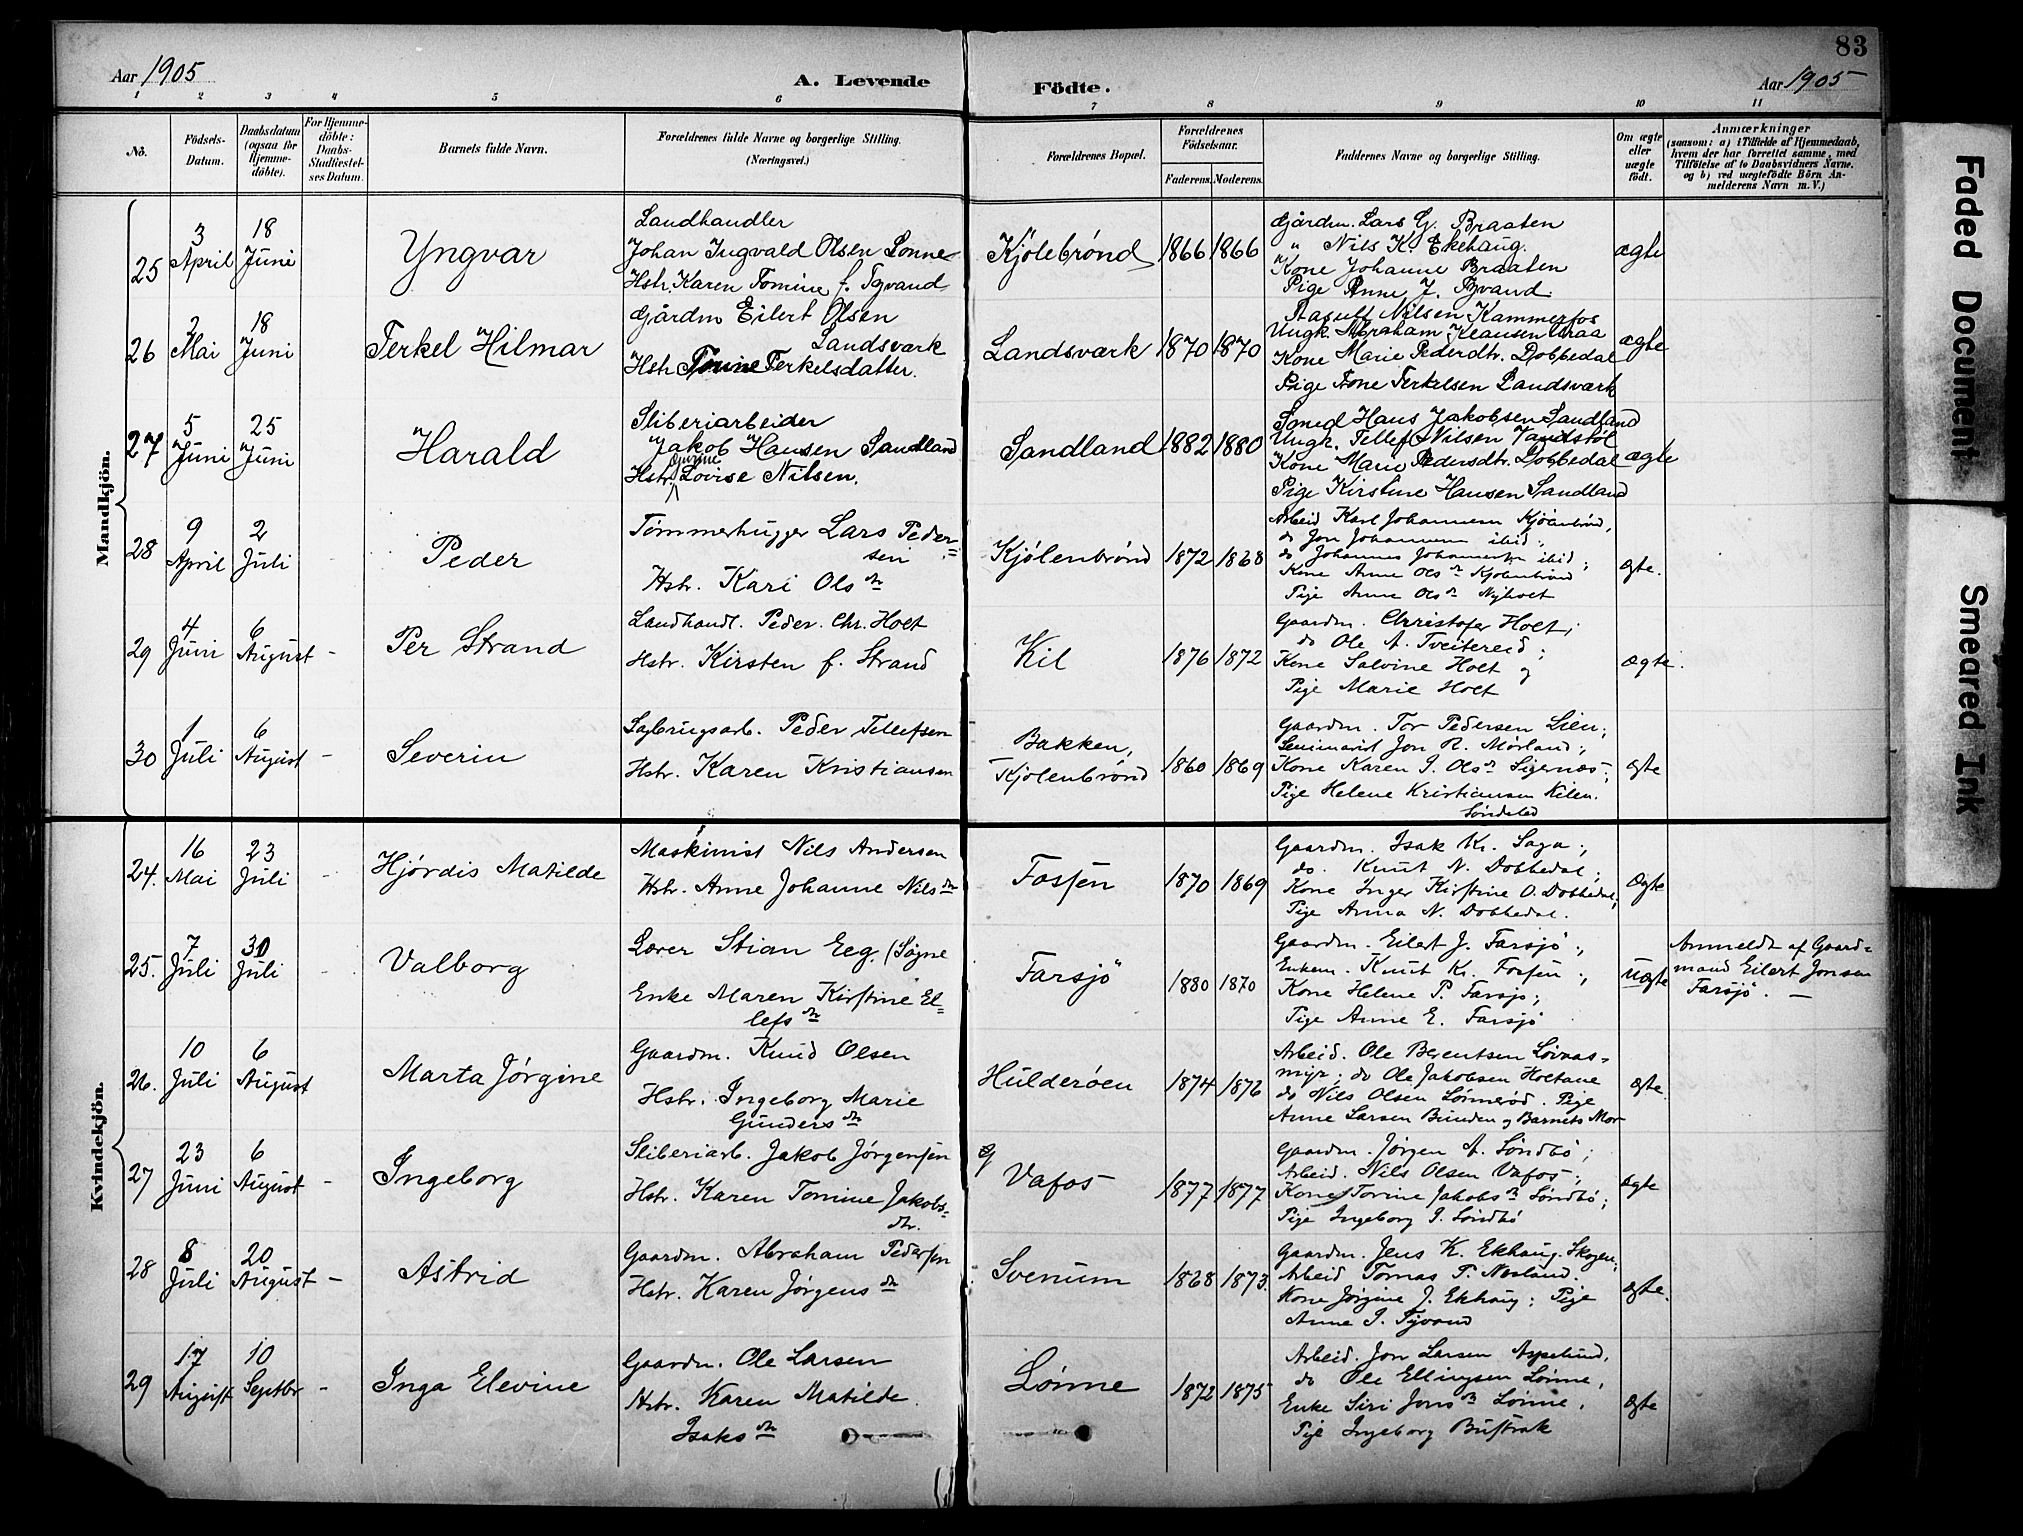 83
Aar 1905
A. Levende
Födte.
Aar 1905
1 2 3 4 5 6 7 8 9 10 11
No.
Födsels-Datum.
Daabsdatum (ogsaa for Hjemme-döbte).
For Hjemme-döbte: Daabs-Stadfæstelses Datum.
Barnets fulde Navn.
Forældrenes fulde Navne og borgerlige Stilling. (Næringsvei.)
Forældrenes Bopæl.
Forældrenes Födselsaar.
Faderens. Moderens.
Faddernes Navne og borgerlige Stilling.
Om ægte eller uægte födt.
Anmærkninger
(saasom: a) i Tilfælde af Hjemmedaab, hvem der har forrettet samme, med Tilföielse af to Daabsvidners Navne. og b) ved uægtefödte Börn Anmelderens Navn m. V.)
Mandkjön.
25
3 April
18 Juni
Yngvar
Landhandler
Johan Ingvald Olsen Lønne
Hstr. Karen Tomine f. Tyvand
Kjølebrønd
1866 1866
Gårdm. Lars G. Braaten
" Nils K. Ekehaug.
Kone Johanne Braaten
Pige Anne J. Tyvand.
ægte
26
2 Mai
18 Juni
Terkel Hilmar
Gårdm Eilert Olsen
Landsværk
Hstr Tomine Terkelsdatter.
Landsværk
1870 1870
Nilsen Kammerfos
Ungk. Abraham Klausen Braa
Kone Marie Pedersdtr. Dobbedal
Pige Tone Terkelsen Landsværk
ægte
27
5 Juni
25 Juni
Harald
Sliberiarbeider
Jakob Hansen Sandland
Hstr. Lovise Nilsen.
Sandland
1882 1880
Smed Hans Jakobsen Sandland
Ungk. Tellef Nilsen Vandstøl
Kone Marie Pedersdtr. Dobbedal
Pige Kirstine Hansen Sandland
ægte
28
9 April
2 Juli
Peder
Tømmerhugger Lars Peder=
sen
Hstr. Kari Olsdr
Kjølenbrønd
1872 1868
Arbeid Karl Johannesen Kjølenbrønd,
do Jon Johannesen ibid;
do Johannes Johannesen ibid;
Kone Anne Olsdr Kjølenbrønd
Pige Anne Olsdr Nyholt
ægte.
29
4 Juni
6 August
-
Per Strand
Landhandl. Peder Chr. Holt
Hstr. Kirsten f. Strand
Kil
1876 1872
Gaardm. Christofer Holt;
do Ole A. Tveitereid;
Kone Salvine Holt og
Pige Marie Holt
ægte.
30
1 Juli
6 August
-
Severin
Sagbrugsarb. Peder Tellefsen
Hstr. Karen Kristiansen
Bakken,
Kjølenbrønd
1860 1869
Gaardm. Tor Pedersen Lien;
Seminarist Jon R. Mørland;
Kone Karen I. Olsdr Ligernæs;
Pige Helene Kristiansen Kilen.
Søndsted
ægte
Kvindekjön.
24.
16 Mai
23 Juli
-
Hjørdis Matilde
Maskinist Nils Andersen
Hstr. Anne Johanne Nilsdr
Fossen
1870 1869
Gaardm. Isak Kr. Saga;
do. Knut N. Dobbedal;
Kone Inger Kirstine O. Dobbedal;
Pige Anna N. Dobbedal.
Ægte
25.
7 Juli
30 Juli
-
Valborg
Lærer Stian Eeg. (Søgne
Enke Maren Kirstine El=
lefsdr
Farsjö
1880 1870
Gaardm. Eilert J. Farsjö;
Enkem. Knut Kr. Fossen;
Kone Helene P. Farsjö;
Pige Anne E. Farsjö
Uægte
Anmeldt af Gaard=
mand Eilert Jonsen
Farsjö. —
26.
10 Juli
6 August
Marta Jørgine
Gaardm. Knud Olsen
Hstr. Ingeborg Marie
Gundersdr
Hulderöen
1874 1876
Arbeid. Ole Berentsen Løvaas-
myr; do Ole Jakobsen Holtane
do Nils Olsen Lønnerød. Pige
Anne Larsen Bunden og Barnets Mor
ægte.
27
23 Juni
6 August
-
Ingeborg
Sliberiarb. Jakob Jørgensen
Hstr. Karen Tomine Jakobs=
dtr.
Vafos
1877 1877
Gaardm. Jørgen A. Søndbö;
Arbeid. Nils Olsen Vafos;
Kone Torine Jakobsdr Søndbö;
Pige Ingeborg J. Søndbö
Ægte
28
8 Juli
20 August
-
Astrid
Gaardm. Abraham Pedersen
Hstr. Karen Jørgensdr
Svenum
1868 1873.
Gaardm. Jens K. Ekhaug. Skogen;
Arbeid Tomas T. Næslund.
Kone Jørgine J. Ekhaug; Pige
Anne J. Tyvand
ægte.
29
17 August
10 Septbr
-
Inga Elevine
Gaardm. Ole Larsen
Hstr. Karen Matilde
Isaksdr
Lönne
1872 1875
Arbeid. Jon Larsen Aspelund,
do Ole Ellingsen Lönne,
Enke Siri Jonsdr Lönne,
Pige Ingeborg Bustrak
Ægte
Faded Document
Smeared Ink